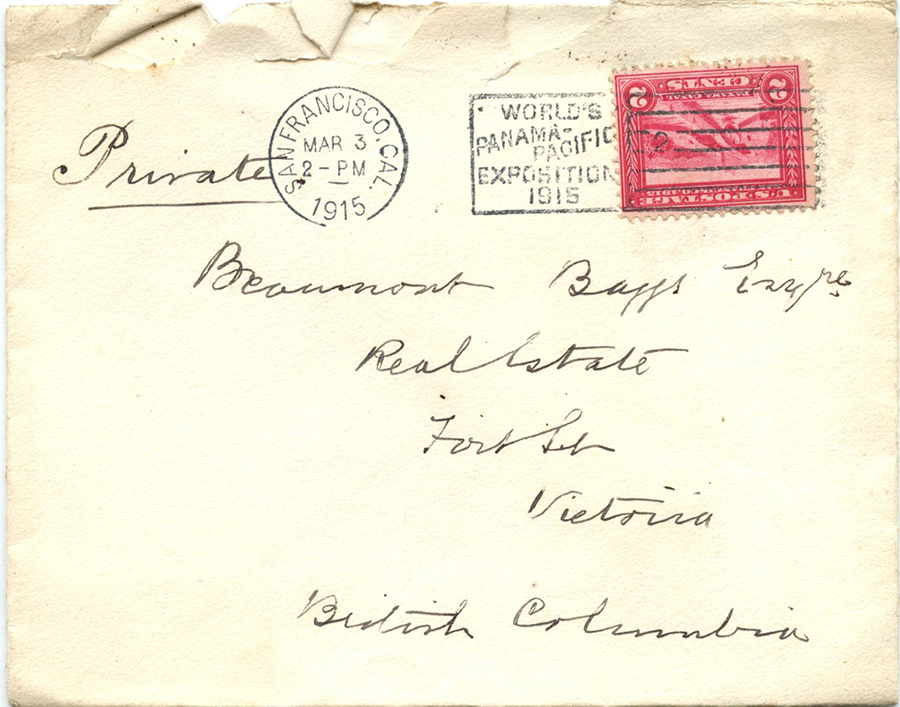 Private
SAN FRANCISCO, CAL.
MAR 3
2-PM
1915
WORLD'S
PANAMA-
PACIFIC
EXPOSITION
1915
2
2 CENTS 2
U.S. POSTAGE
Beaumont Boggs Esqre
Real Estate
Fort St
Victoria
British Columbia